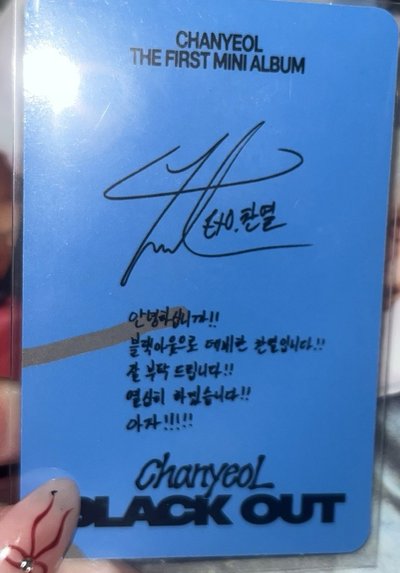 CHANYEOL
THE FIRST MINI ALBUM
EXO.찬열
안녕하십니까!!
블랙아웃으로 데뷔한 찬열입니다!!
잘 부탁 드립니다!!
열심히 하겠습니다!!
아자!!!!!
Chanyeol
BLACK OUT